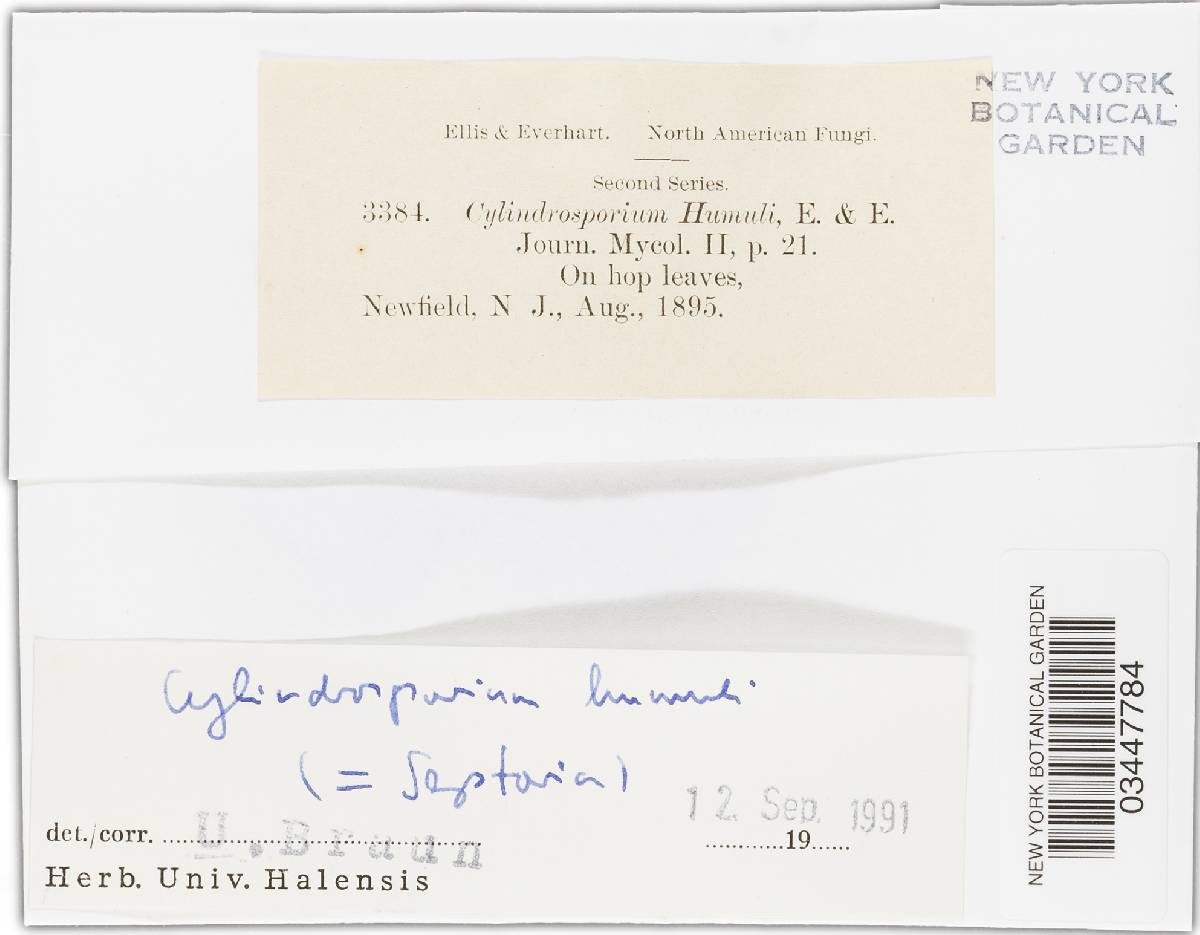 NEW YORK
BOTANICAL
GARDEN
Ellis & Everhart. North American Fungi.
Second Series.
3384. Cylindrosporium Humuli, E. & E.
Journ. Mycol. II, p. 21.
On hop leaves,
Newfield, N J., Aug., 1895.
Cylindrosporium humuli
(= Septoria)
12. Sep. 1991
det./corr. U. Braun
19
Herb. Univ. Halensis
NEW YORK BOTANICAL GARDEN
03447784